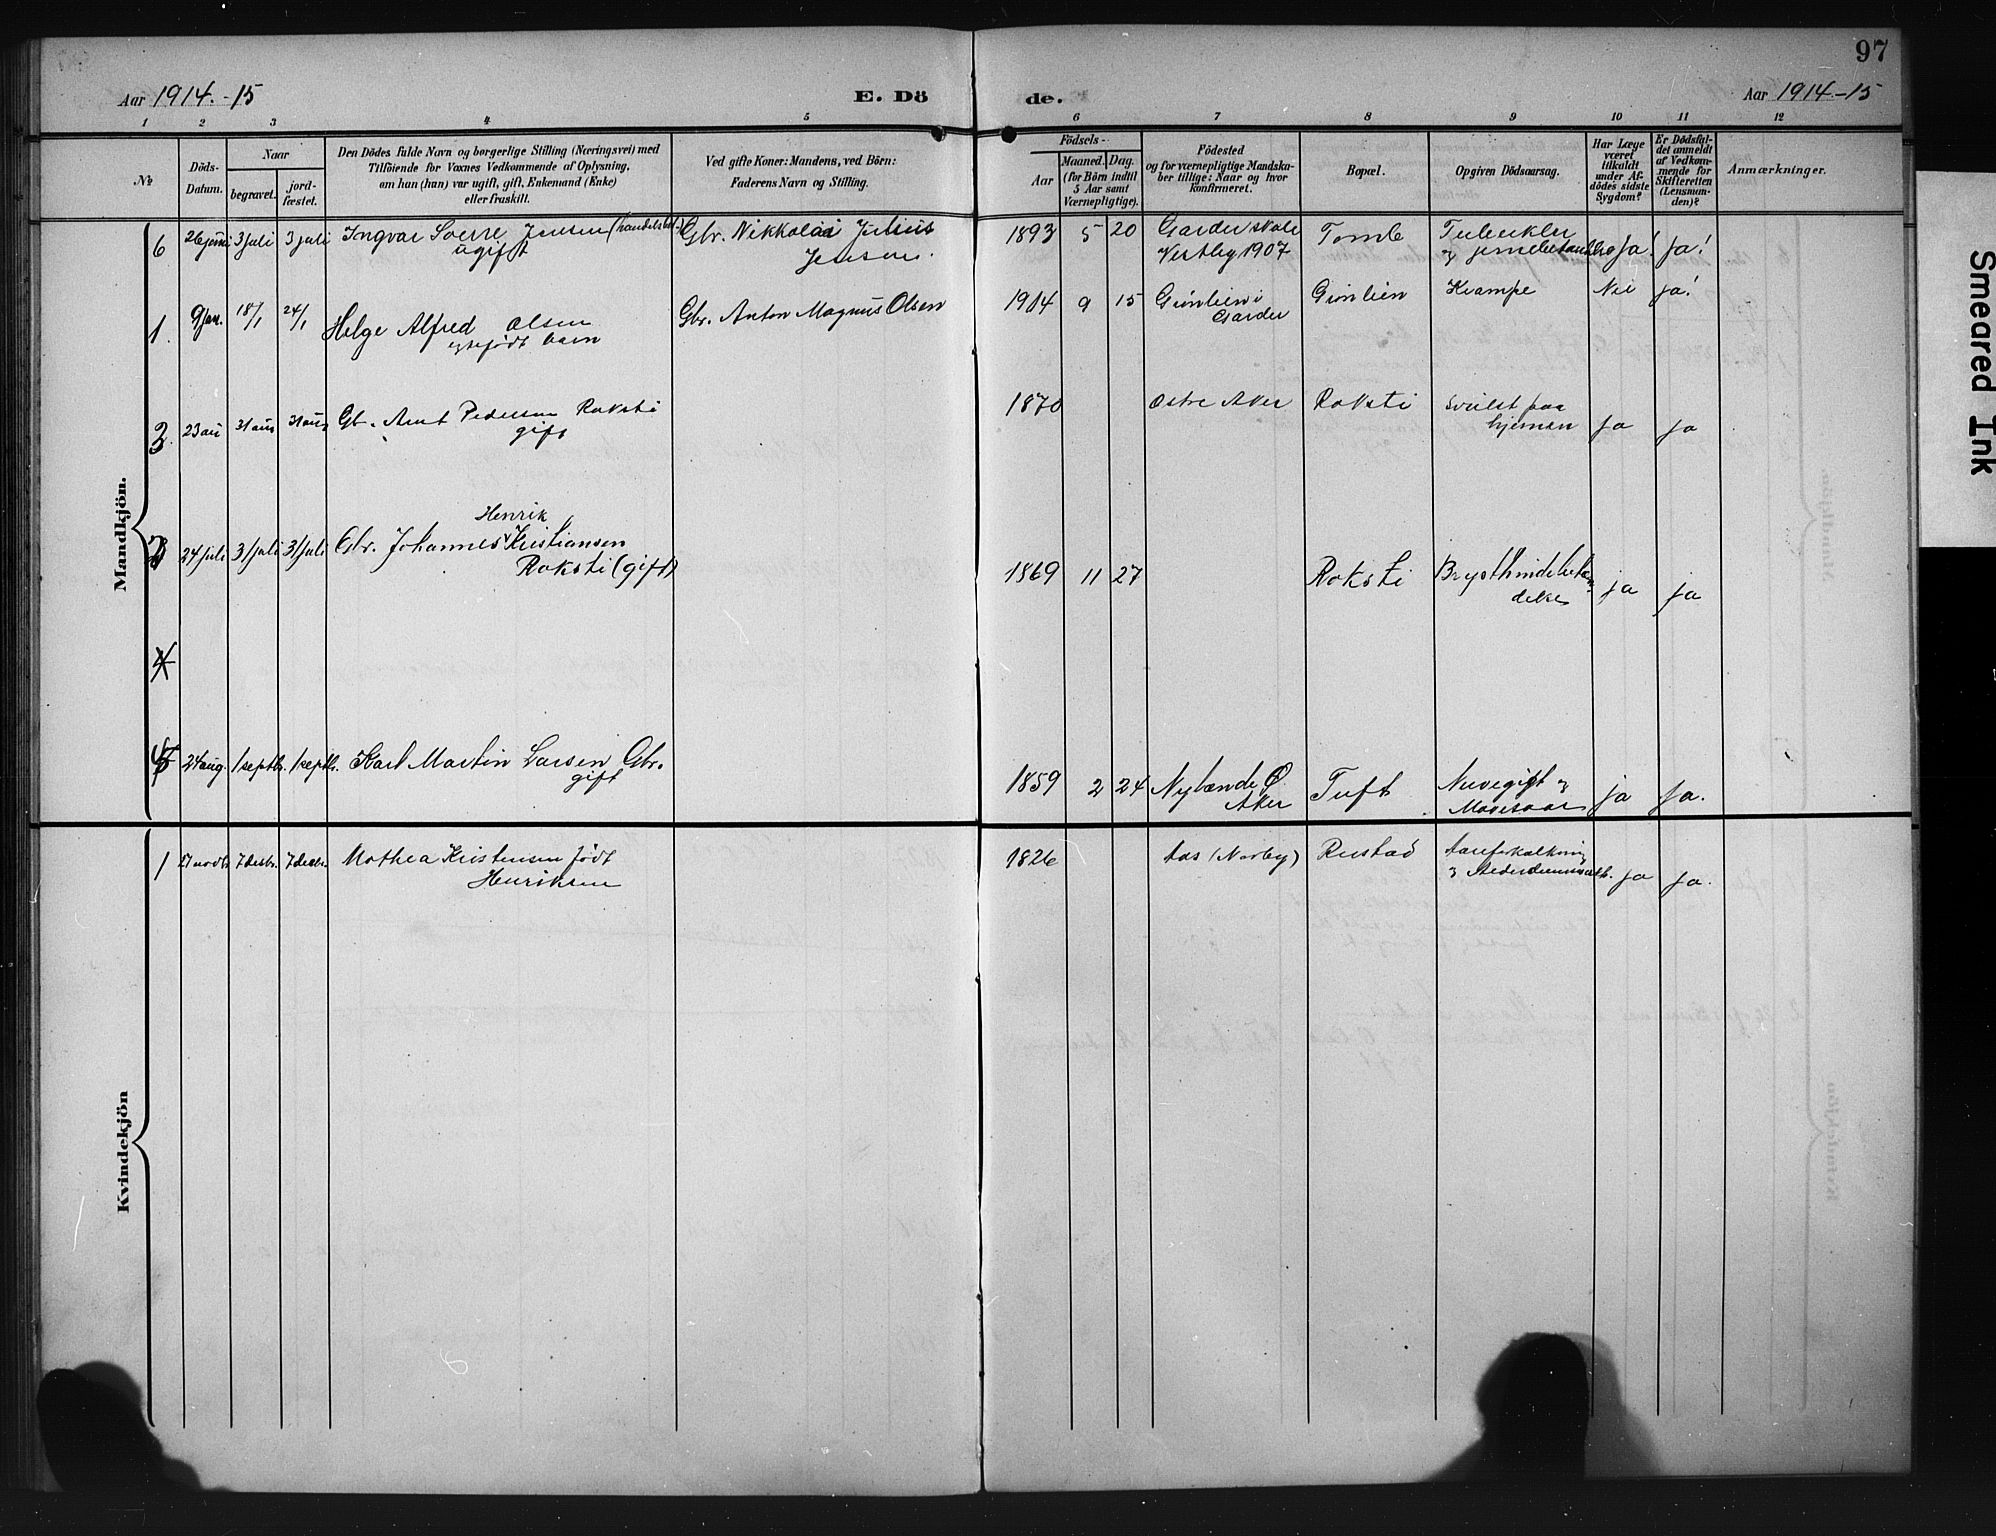 97
Aar 1914.-15
E. Dö
de.
Aar 1914-15
1 2 3 4 5 6 7 8 9 10 11 12
No
Döds-
Datum.
Naar
begravet.
jord-
fæstet.
Den Dödes fulde Navn og borgerlige Stilling (Næringsvei) med
Tilföiende for Voxnes Vedkommende af Oplysning,
om han (hun) var ugift, gift, Enkemand (Enke)
eller fraskilt.
Ved gifte Koner: Mandens, ved Börn:
Faderens Navn og Stilling.
Födsels-
Aar
Maaned. Dag.
(for Börn indtil
5 Aar samt
Værnepligtige).
Födested
og for værnepligtige Mandska-
ber tillige: Naar og hvor
konfirmeret.
Bopæl.
Opgiven Dödsaarsag.
Har Læge
været
tilkaldt
under Af-
dödes sidste
Sygdom?
Er Dödsfal-
det anmeldt
af Vedkom-
mende for
Skifteretten
(Lensman-
den)?
Anmærkninger.
Mandkjön.
6 26 juni 3 juli 3 juli Ingvar Jensen
ugift
Gbr. Nikkolai Julius
Jensen.
1893 5 20 Garder skole
Vestby 1907
Tomle
Tuberkler
og
Ja! Ja!
1. 9 jan. 18/1 24/1 Helge Alfred Olsen
barn
Gbr. Anton Magnus Olsen
1914 9 15 Grønlien i
Garder
Grønlien Krampe Nei ja!
2. 23 au 31 aug 31 aug Gb. Arnt Pedersen Roksti
gift
1870 Østre Aker Roksti Svulst paa
hjernen ja ja
3 24 juli 31 juli 31 juli Gbr. Johannes Henrik Kristiansen
Roksti (gift)
1869 11 27 Roksti Brysthindebetæn-
delse ja ja
4
24 aug. 1 septb. 1 septb. Karl Martin Larsen Gbr.
gift
1859 2 24 Nylænde Ø.
Aker
Tuft
og
Mavesaar
ja ja.
Kvindekjön
1 27 novb. 7 desbr. 7 desbr. Mathea Kristensen født
Henriksen
1826 Aas (Norby) Rustad Aareforkalkning
og
ja ja.
6
Smeared Ink